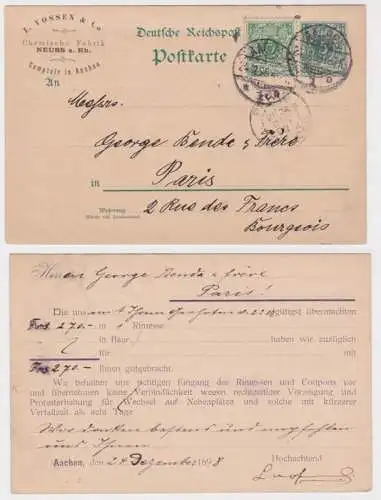 L. VOSSEN & Co
Chemische Fabrik
NEUSS a. Rh.
Comptoir in Aachen
Deutsche Reichspost
Postkarte
An
Messrs.
George Bende & Frère
in Paris
Wohnung
2 Rue des Francs
Bourgeois
Herren George Benda & frère
Paris!
Die uns am gütigst übermachten
Frcs 270.- in 1 Rimesse
in Baar haben wir zuzüglich
für mit
Frcs 270.- Ihnen gutgebracht.
Wir behalten uns richtigen Eingang der Remessen und Coupons vor
und übernehmen keine Verbindlichkeit wegen rechtzeitiger Vorzeigung und
Protesterhaltung für Wechsel auf Nebenplätze und solche mit kürzerer
Verfallzeit als acht Tage
Wir danken bestens und empfehlen
uns Ihnen
Hochachtend
Aachen, den 24 Dezember 1898